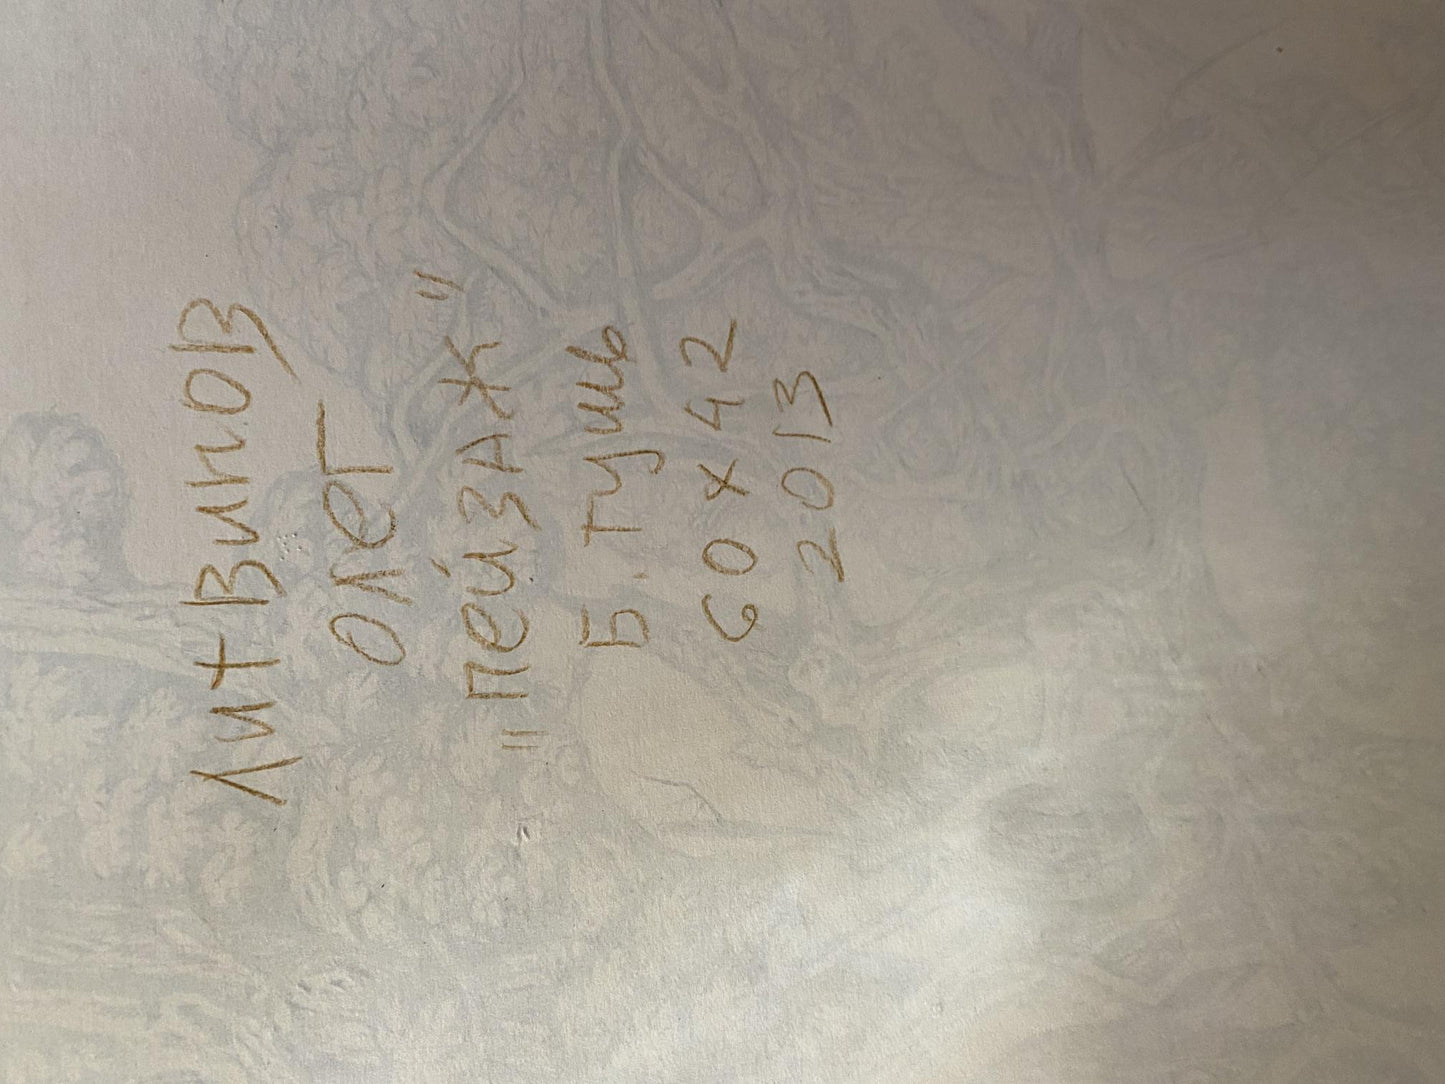 Литвинов
Олег
"Пейзаж"
Б. Тушь
60 x 42
2013